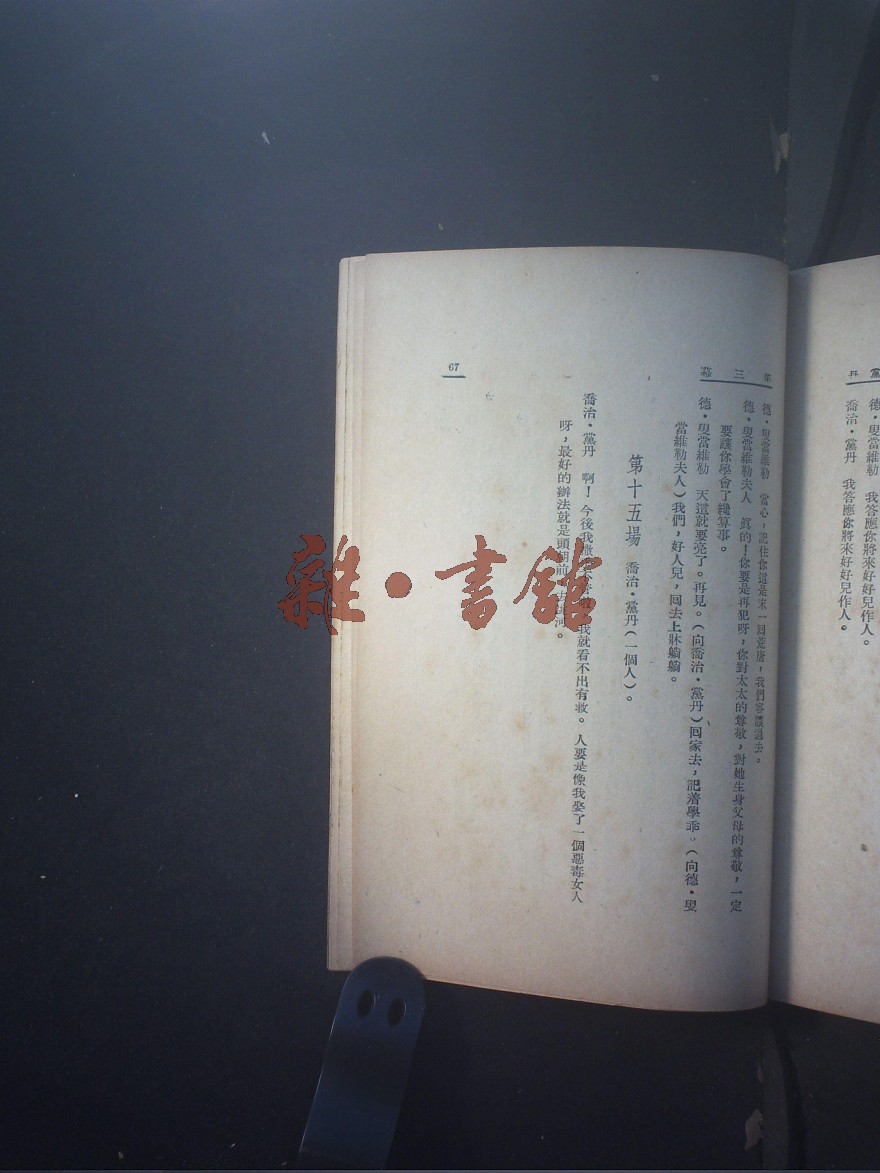 黨丹
德·叟當維勒　我答應你將來好好兒作人。
喬治·黨丹　我答應你將來好好兒作人。
第三幕
德·叟當維勒　當心，記住你這是末一回荒唐，我們容讓過去。
德·叟當維勒夫人　眞的！你要是再犯呀，你對太太的尊敬，對她生身父母的尊敬，一定
要讓你學會了纔算事。
德·叟當維勒　天這就要亮了。再見。（向喬治·黨丹）回家去，記着學乖。（向德·叟
當維勒夫人）我們，好人兒，回去上牀躺躺。
第十五場　喬治·黨丹（一個人）。
喬治·黨丹　啊！今後我我就看不出有救。人要是像我娶了一個惡毒女人
呀，最好的辦法就是頭朝前去河。
67
雜·書館